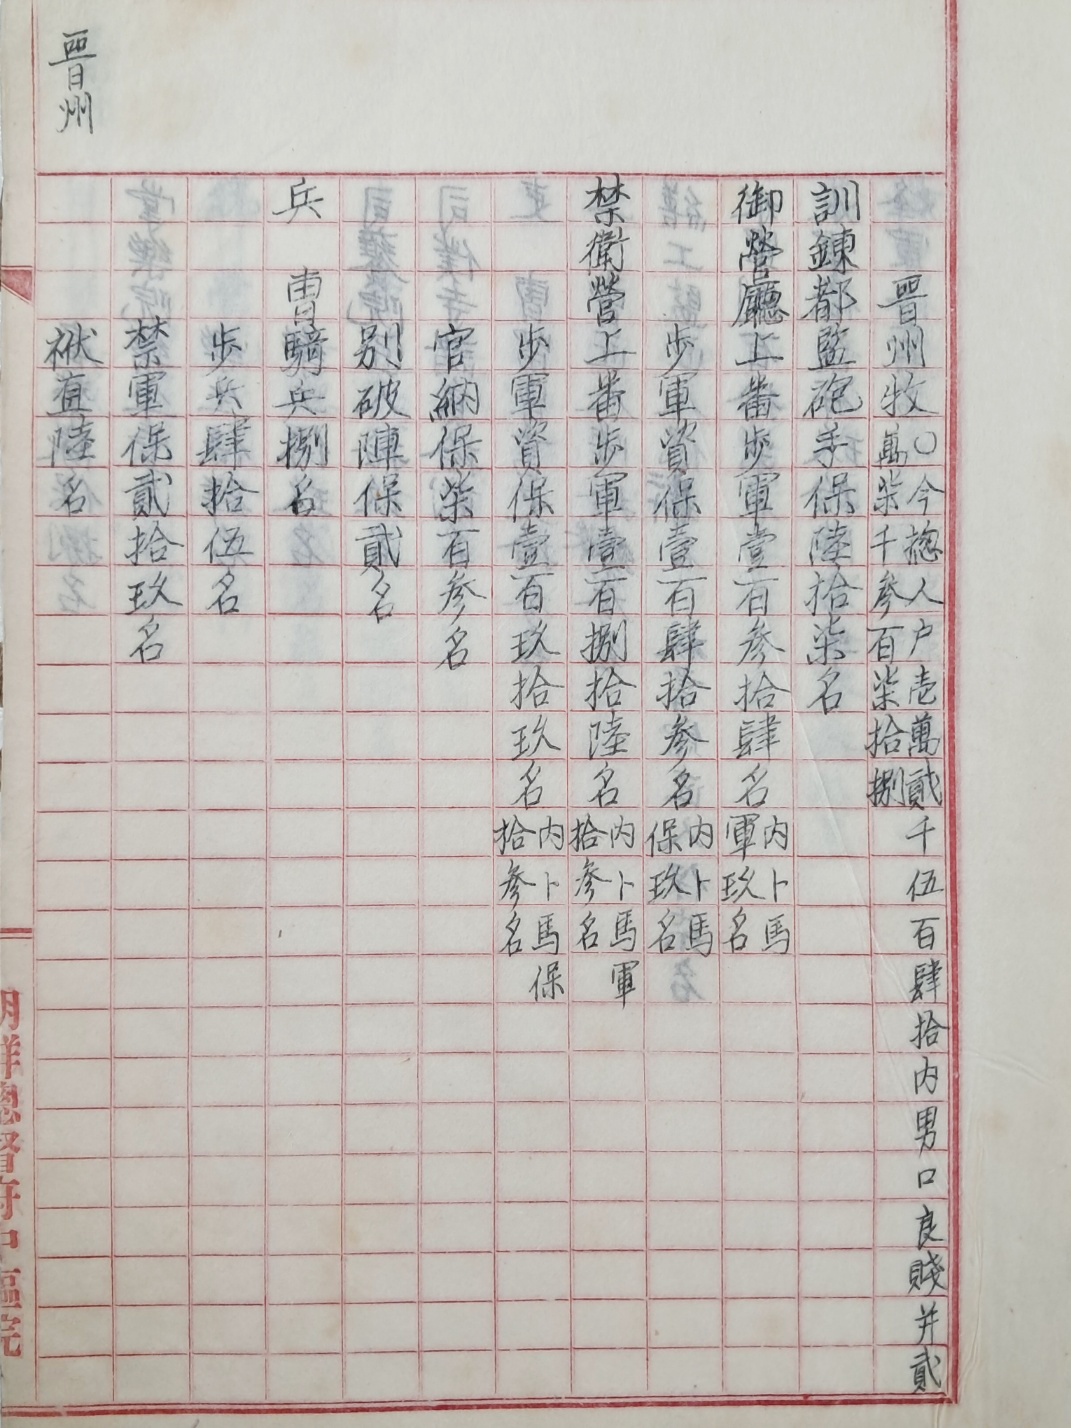 晉州
晉州牧○今摠人户壱萬貳千伍百肆拾内男口良賤并貳
萬柒千參百柒拾捌
訓鍊都監砲手保陸拾柒名
御營廳上番步軍壹百參拾肆名内卜馬
軍玖名
步軍資保壹百肆拾參名内卜馬
保玖名
禁衛營上番步軍壹百捌拾陸名内卜馬軍
拾參名
步軍資保壹百玖拾玖名内卜馬保
拾參名
官納保柒百參名
別破陣保貳名
兵曺騎兵捌名
步兵肆拾伍名
禁軍保貳拾玖名
袱直陸名
朝鮮總督府中樞院